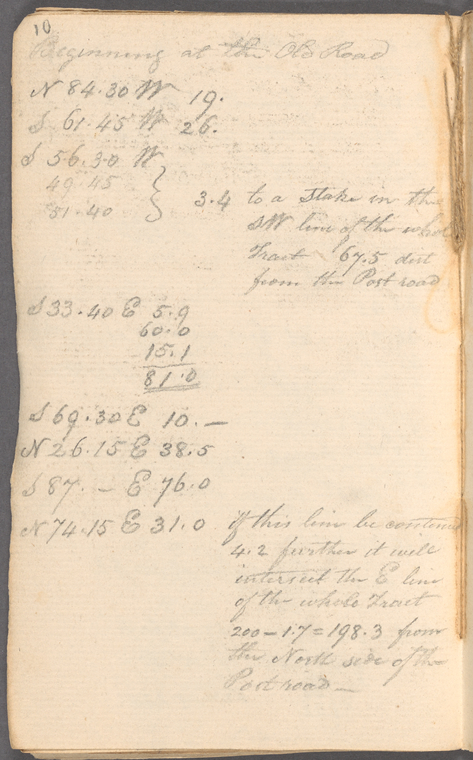 10
Beginning at the Old Road
N 84.30 W 19.
S 61.45 W 26.
S 56.30 W
49.45
51.40
3.4 to a Stake in the
SW line of the whole
Tract 67.5 dist
from the Post road
S 33.40 E 5.9
60.0
15.1
81.0
S 69.30 E 10.—
N 26.15 E 38.5
S 87. — E 76.0
N 74.15 E 31.0 if this line be continued
4.2 further it will
intersect the E line
of the whole Tract
200 — 1.7 = 198.3 from
the North side of the
Post road —